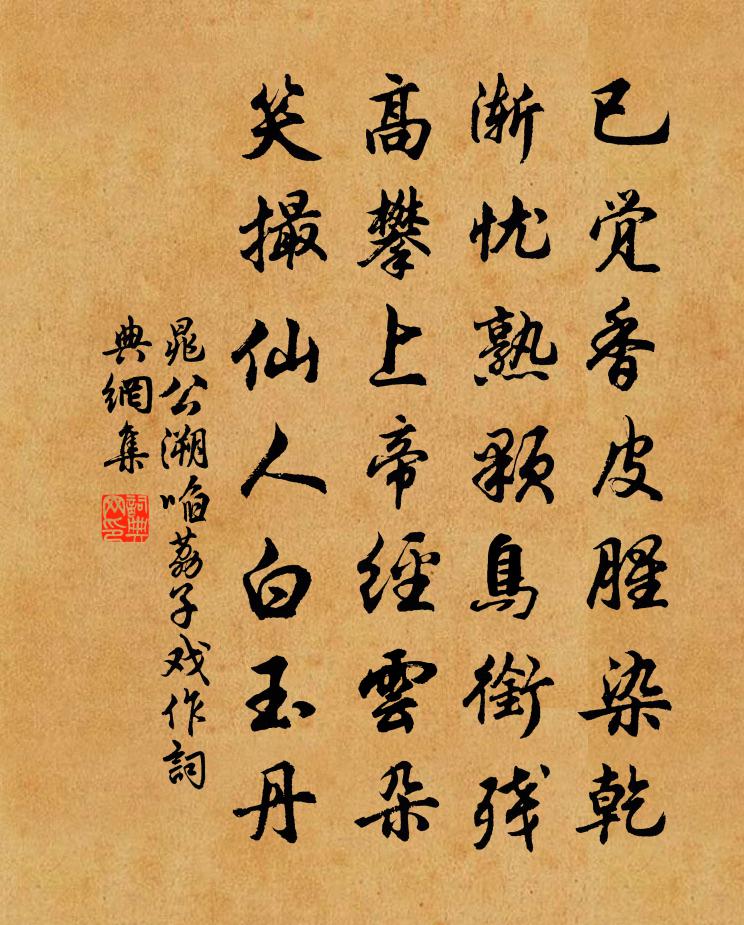 已觉香皮腥染乾
渐忧熟颗鳥銜残
高攀上帝經雲朵
笑撮仙人白玉丹
晁公溯啗荔子戏作詞
典網集
詞典
网印